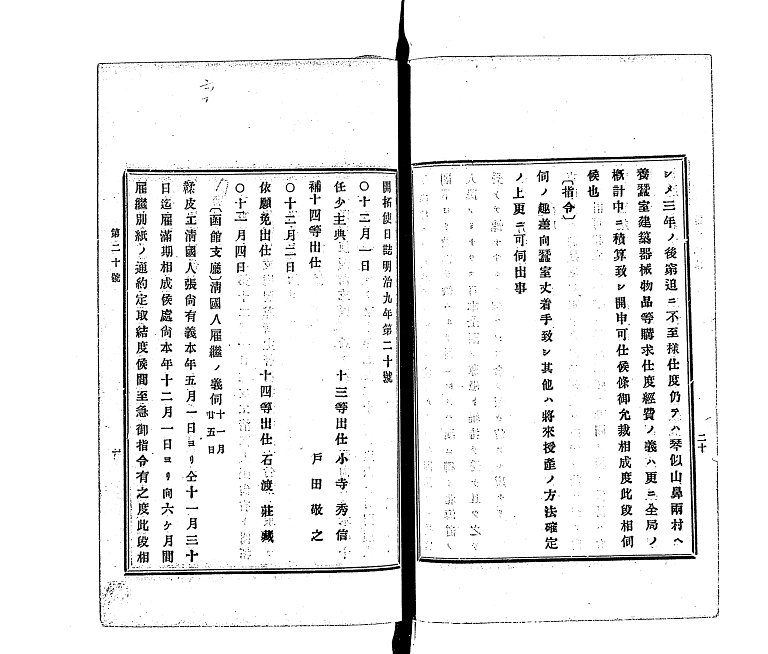 シメ三年ノ後窮迫ニ不至様仕度仍テハ琴似山鼻兩村ヘ
養蠶室建築器械物品等購求仕度經費ノ義ハ更ニ全局ノ
概計中ニ積算致シ開申可仕候條御允裁相成度此段相伺
候也
〔指令〕
伺ノ趣差向蠶室丈着手致シ其他ハ將來授產ノ方法確定
ノ上更ニ可伺出事
二十
開拓使日誌明治九年第二十號
〇十二月一日
任少主典 十三等出仕 小寺秀信
補十四等出仕 戸田敬之
〇十二月二日
依願免出仕 十四等出仕 石渡莊藏
〇十二月四日
〔函館支廳〕清國人雇繼ノ義伺 十一月廿五日
鞣皮工清國人張尙有義本年五月一日ヨリ仝十一月三十
日迄雇滿期相成候處尙本年十二月一日ヨリ向六ケ月間
雇繼別紙ノ通約定取結度候間至急御指令有之度此段相
第二十號